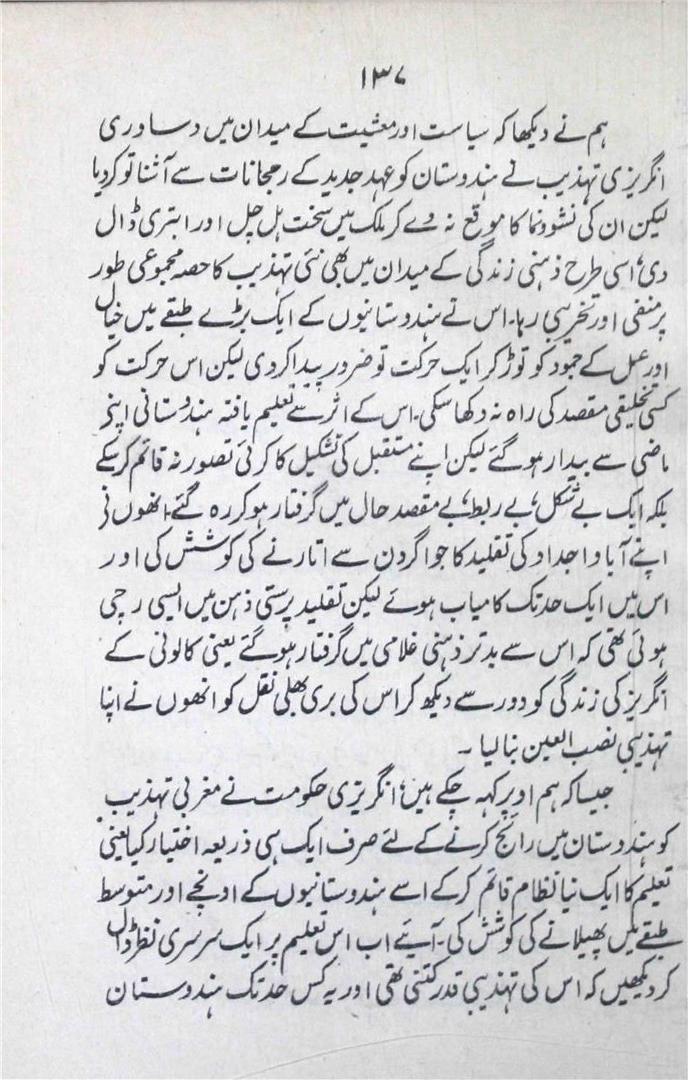 ۱۳۷
ہم نے دیکھا کہ سیاست اور معشیت کے میدان میں دساوری
انگریزی تہذیب نے ہندوستان کو عہد جدید کے رجحانات سے آشنا تو کر دیا
لیکن ان کی نشوونما کا موقع نہ دے کر ملک میں سخت ہل چل اور ابتری ڈال
دی، اسی طرح ذہنی زندگی کے میدان میں بھی نئی تہذیب کا حصہ مجموعی طور
پر منفی اور تخریبی رہا۔ اس نے ہندوستانیوں کے ایک بڑے طبقے میں خیال
اور عمل کے جمود کو توڑ کر ایک حرکت تو ضرور پیدا کر دی لیکن اس حرکت کو
کسی تخلیقی مقصد کی راہ نہ دکھا سکی۔ اس کے اثر سے تعلیم یافتہ ہندوستانی اپنے
ماضی سے بیدار ہو گئے لیکن اپنے مستقبل کی تشکیل کا کوئی تصور نہ قائم کر سکے
بلکہ ایک بے شکل، بے ربط، بے مقصد حال میں گرفتار ہو کر رہ گئے۔ انھوں نے
اپنے آبا و اجداد کی تقلید کا جوا گردن سے اتارنے کی کوشش کی اور
اس میں ایک حد تک کامیاب ہوئے لیکن تقلید پرستی ذہن میں ایسی رچی
ہوئی تھی کہ اس سے بدتر ذہنی غلامی میں گرفتار ہو گئے یعنی کالونی کے
انگریز کی زندگی کو دور سے دیکھ کر اس کی بری بھلی نقل کو انھوں نے اپنا
تہذیبی نصب العین بنا لیا ۔
جیسا کہ ہم اوپر کہہ چکے ہیں، انگریزی حکومت نے مغربی تہذیب
کو ہندوستان میں رائج کرنے کے لئے صرف ایک ہی ذریعہ اختیار کیا یعنی
تعلیم کا ایک نیا نظام قائم کر کے اسے ہندوستانیوں کے اونچے اور متوسط
طبقے میں پھیلانے کی کوشش کی۔ آیئے اب اس تعلیم پر ایک سرسری نظر ڈال
کر دیکھیں کہ اس کی تہذیبی قدر کتنی تھی اور یہ کس حد تک ہندوستان